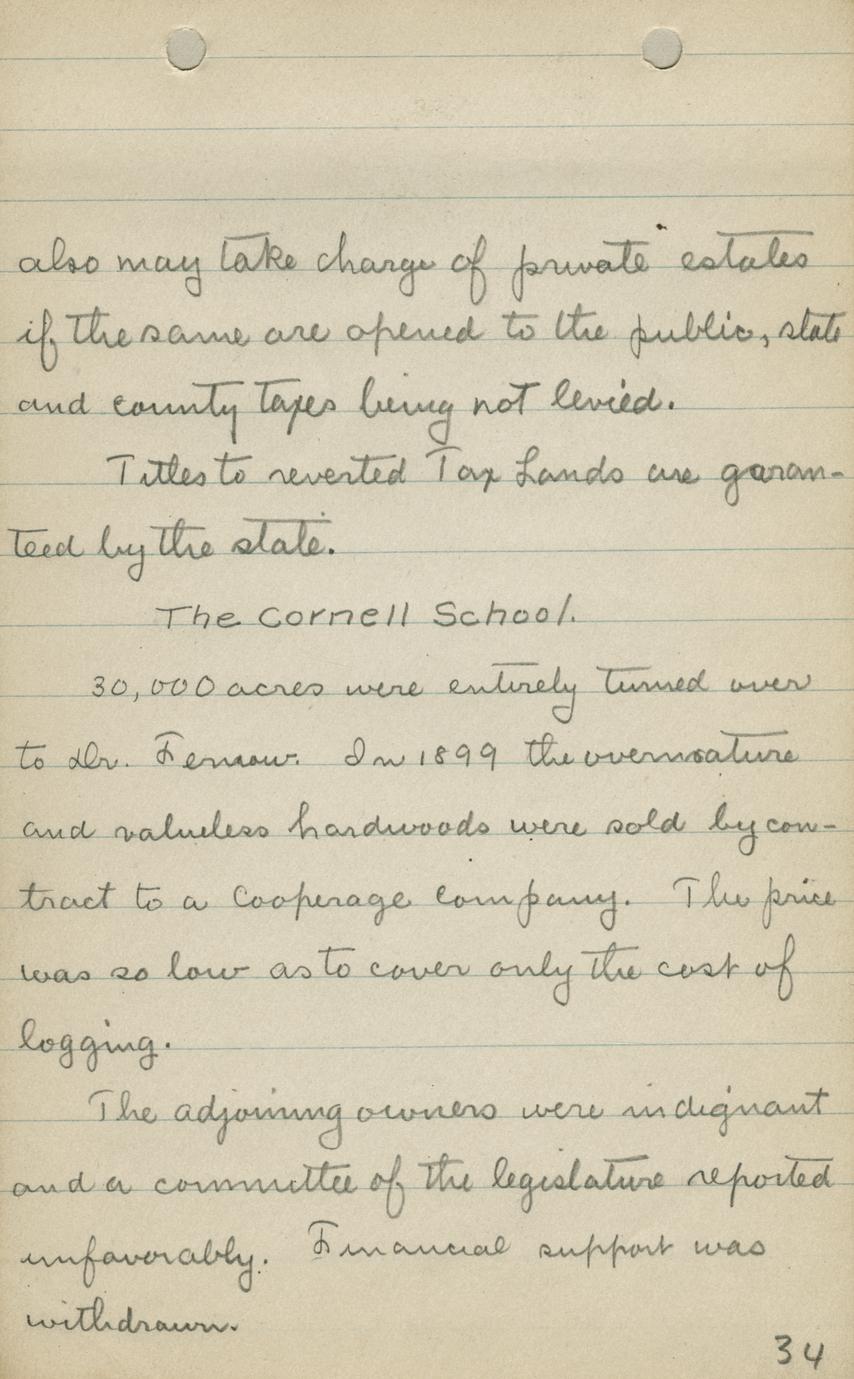 also may take charge of private estates
if the same are opened to the public, state
and county taxes being not levied.
Titles to reverted Tax Lands are garan-
teed by the state.
The Cornell School.
30,000 acres were entirely turned over
to Dr. Fernow. In 1899 the overmature
and valueless hardwoods were sold by con-
tract to a Cooperage Company. The price
was so low as to cover only the cost of
logging.
The adjoining owners were indignant
and a committee of the legislature reported
unfavorably. Financial support was
withdrawn.
34